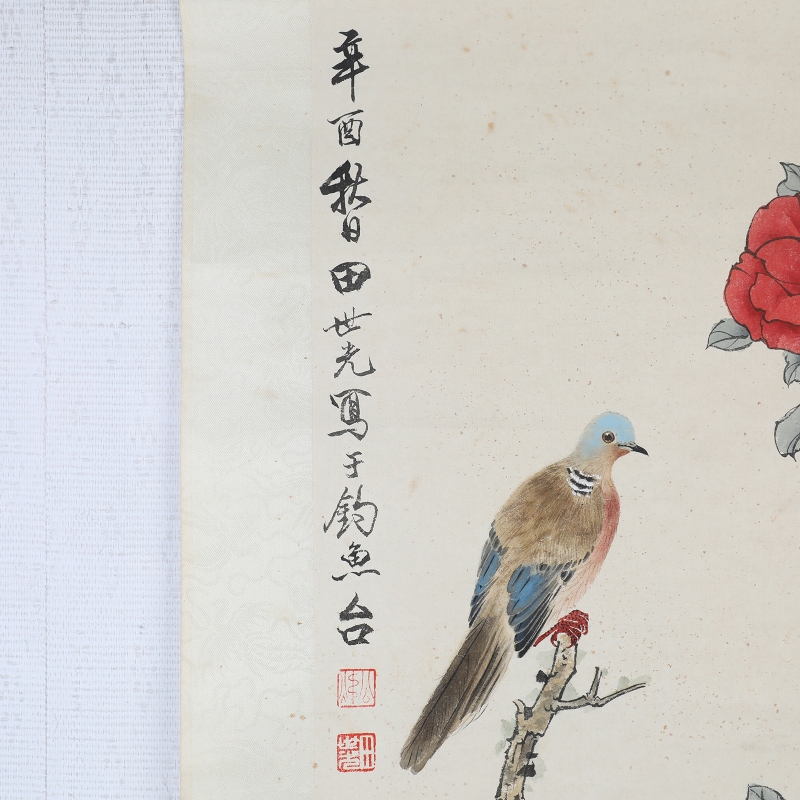 辛酉秋日田世光寫于釣魚台